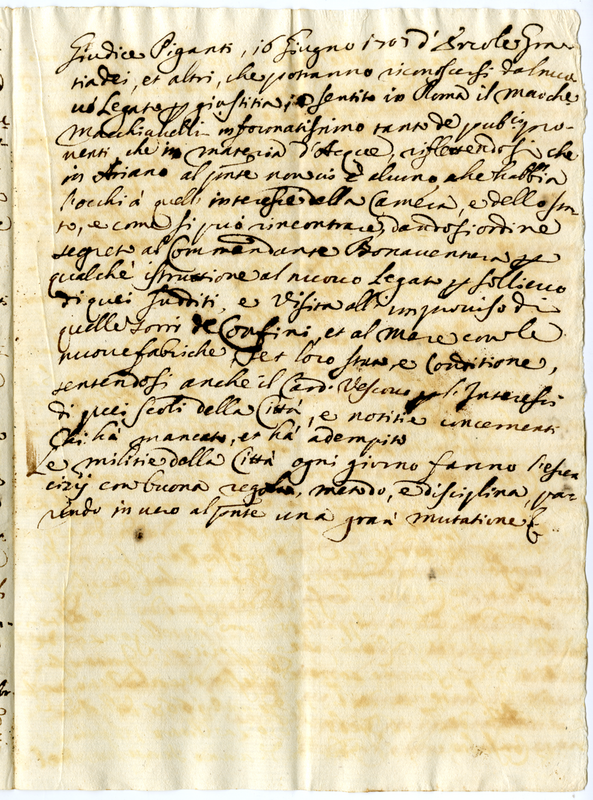 Giudice Piganti, 16 Giugno 1707 d'Ercole Gra-
tiadei, et altri, che potranno riconoscersi dal nuo
vo Legato p giustitia, sentito in Roma il Marche
Macchiavelli informatissimo tanto de' pub.ci pro-
venti che in materia d'Acque, riflettendosi che
in Ariano al pnte non vi è alcuno che habbia
l'occhi à quell' interesse della Camera, e dello sta-
to, e come si può rincontrare, dandosi ordine
segreto al Commandante Bonaventura p
qualche istruttione al nuovo Legato p sollievo
di quei sudditi, e visita all' improviso di
quelle torri de Confini, et al Mare con le
nuove fabriche, et loro stato, e conditione,
sentendosi anche il Card. Vescovo p l'Interessi
di quei scoli della Città, e notitie concernenti
Chi hà mancato, et hà adempito
Le militie della Città ogni giorno fanno l'eser
cizij con buona regola, metodo, e disciplina, pa-
rendo in vero al pnte una gran mutatione